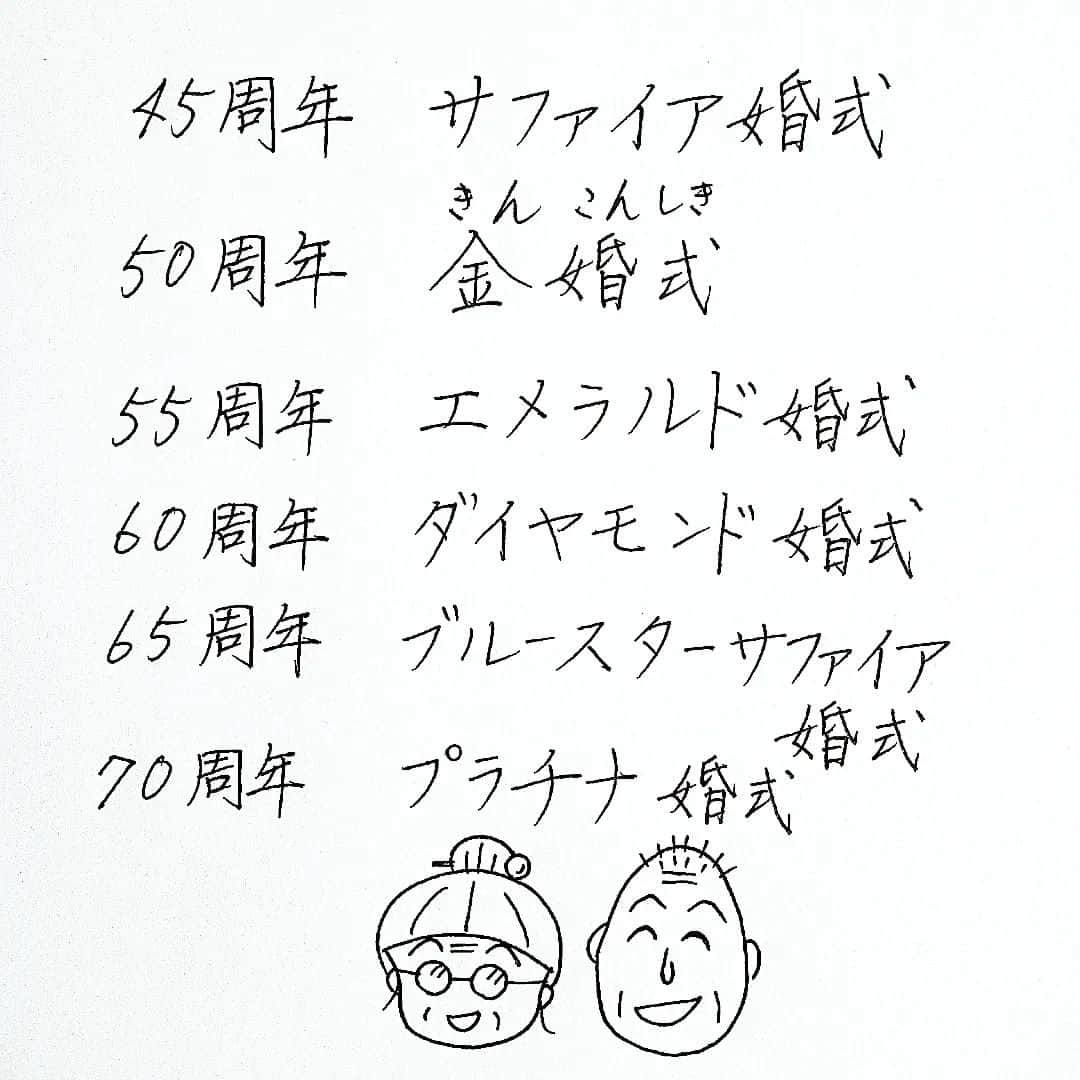 45周年 サファイア婚式
きん こんしき
50周年 金婚式
55周年 エメラルド婚式
60周年 ダイヤモンド婚式
65周年 ブルースターサファイア
婚式
70周年 プラチナ婚式